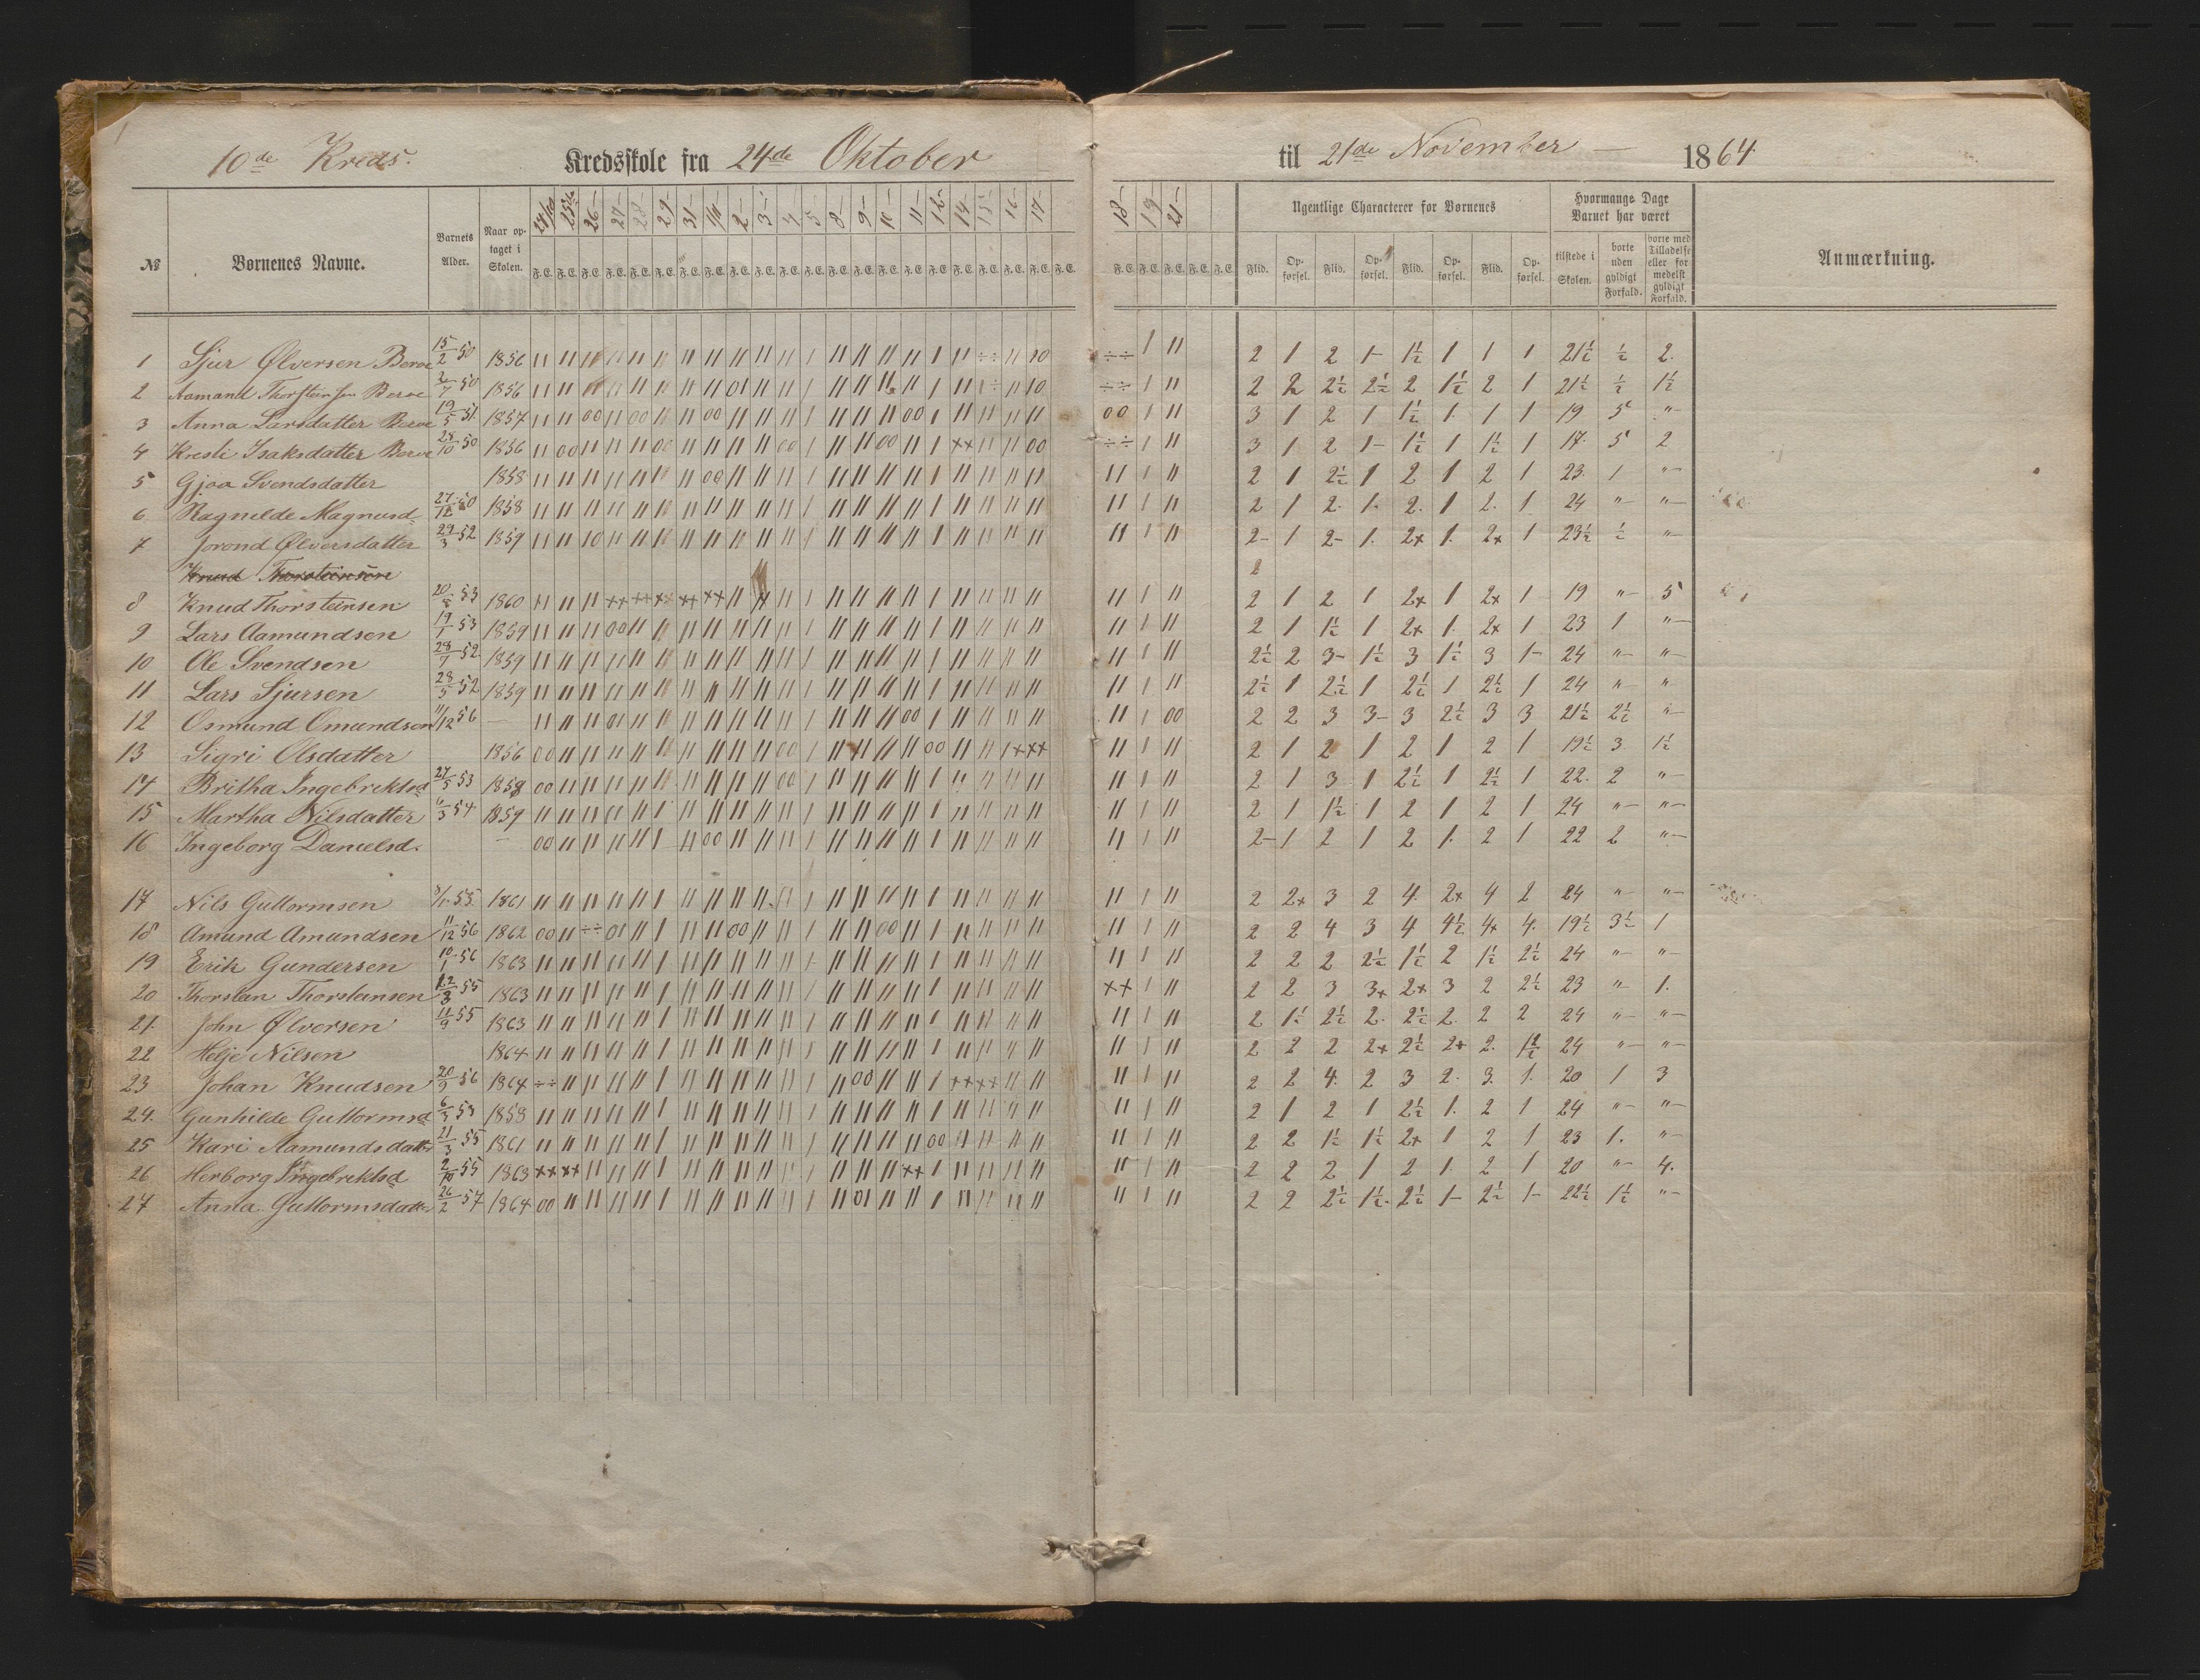 10de Kreds. Kredsskole fra 24de Oktober til 21de November — 1864
№ Børnenes Navne. Barnets Alder. Naar optaget i Skolen. 24/10 25/10 26- 27- 28- 29- 31- 1/11- 2- 3- 4- 5- 8- 9- 10- 11- 12- 14- 15- 16- 17- 18- 19- 21- Ugentlige Characterer for Børnenes Hvormange Dage Barnet har været Anmærkning.
F. E. Flid. Opførsel. Flid. Opførsel. Flid. Opførsel. Flid. Opførsel. tilstede i Skolen. borte uden gyldigt Forfald. borte med Tilladelse eller formedelst gyldigt Forfald.
1 Sjur Ølversen Berve 15/2 50 1856 2 1 2 1- 1½ 1 1 1 21½ ½ 2.
2 Aamand Thorsteinsen Berve 2/7 50 1856 2 2 2½ 2½ 2 1½ 2 1 21½ ½ 1½
3 Anna Larsdatter Berve 19/5 51. 1857 3 1 2 1 1½ 1. 1 1 19 5 "-
4 Kresti Isaksdatter Berve 28/10 50 1856 3 1 2 1- 1½ 1 1½ 1 17. 5 2
5 Gjoa Svendsdatter 1858 2 1 2½ 1 2 1 2 1 23. 1 "-
6 Ragnilde Magnusd. 27/12 50 1858 2 1 2. 1. 2. 1 2. 1 24 "- "-
7 Jorond Ølversdatter 29/3 52 1859 2- 1 2- 1. 2x 1. 2x 1 23½ ½ "-
Knud Thorsteinsen 2
8 Knud Thorsteinsen 20/8 53 1860 2 1 2 1 2x 1 2x 1 19 "- 5
9 Lars Aamundsen 19/1 53 1859 2 1 1½ 1 2x 1. 2x 1 23 1 "-
10 Ole Svendsen 28/7 52 1859 2½ 2 3- 1½ 3 1½ 3 1- 24 "- "-
11 Lars Sjursen 28/5 52 1859 2½ 1 2½ 1 2½ 1 2½ 1 24 "- "-
12 Osmund Omundsen 11/12 56 — 2 2 3 3- 3 2½ 3 3 21½ 2½ "-
13 Sigri Olsdatter 1856 2 1 2 1 2 1 2 1 19½ 3 1½
14 Britha Ingebriktsd 27/5 53 1858 2 1 3 1 2½ 1 2½ 1 22. 2 "-
15 Martha Nilsdatter 11/3 54 1859 2 1 1½ 1 2 1 2 1 24 "- "-
16 Ingeborg Danielsd. — 2- 1 2 1 2 1. 2 1 22 2 "-
17 Nils Guttormsen 8/11 55 1861 2 2x 3 2 4 2x 4 2 24 "- "-
18 Amund Amundsen 11/12 56 1862 2 2 4 3 4 4½ 4x 4. 19½ 3½ 1
19 Erik Gundersen 10/1 56 1863 2 2 2 2½ 1½ 2 1½ 2½ 24 "- "-
20 Thorstan Thorsteinsen 12/3 55 1863 2 2 3 3x 2x 3 2 2½ 23 "- 1.
21. John Ølversen 11/9 55 1863 2 1½ 2½ 2. 2½ 2. 2 2 24 "- "-
22 Helje Nilsen 1864 2 2 2 2x 2½ 2x 2. 1½ 24 "- "-
23 Johan Knudsen 20/9 56 1864 2 2 4. 2 3 2. 3. 1. 20 1 3
24. Gunhilde Guttormsd 6/3 53 1858 2 1 2 1 2½ 1. 2 1 24 "- "-
25 Kari Aamundsdatter 21/3 55 1861 2 2 1½ 1½ 2x 1 2 1 23 1. "-
26 Herborg Ingebriktsd 2/10 55 1863 2 2 2 1 2 1. 2 1 20 "- 4.
27 Anna Guttormsdatter 26/2 57 1864 2 2 2½ 1½ 2½ 1- 2½ 1- 22½ 1½ "-